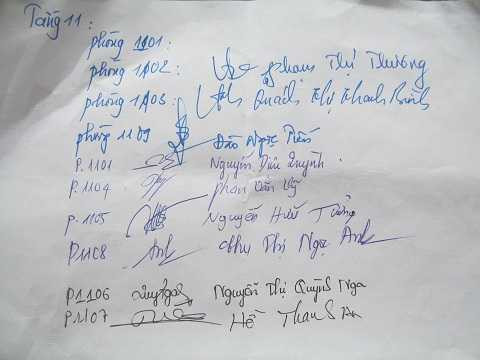 Tầng 11:
phòng 1101:
phòng 1102: Phạm Thị Thương
phòng 1103: Quách Thị Thanh Bình
phòng 1109 Đào Ngọc Tiến
P.1101 Nguyễn Diệu Quỳnh.
P.1104 phan Văn Kỹ
P.1105 Nguyễn Hữu Tưởng
P1108 Anh Chu Thị Ngọc Anh
P1106 Nguyễn Thị Quỳnh Nga
P.1107 Hồ Thanh